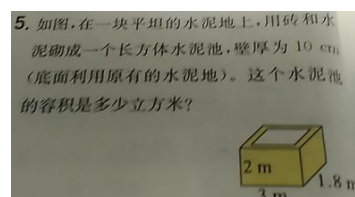 5. 如图,在一块平坦的水泥地上,用砖和水
泥砌成一个长方体水泥池,壁厚为 10 cm
(底面利用原有的水泥地)。这个水泥池
的容积是多少立方米?
2 m
1.8 m
3 m